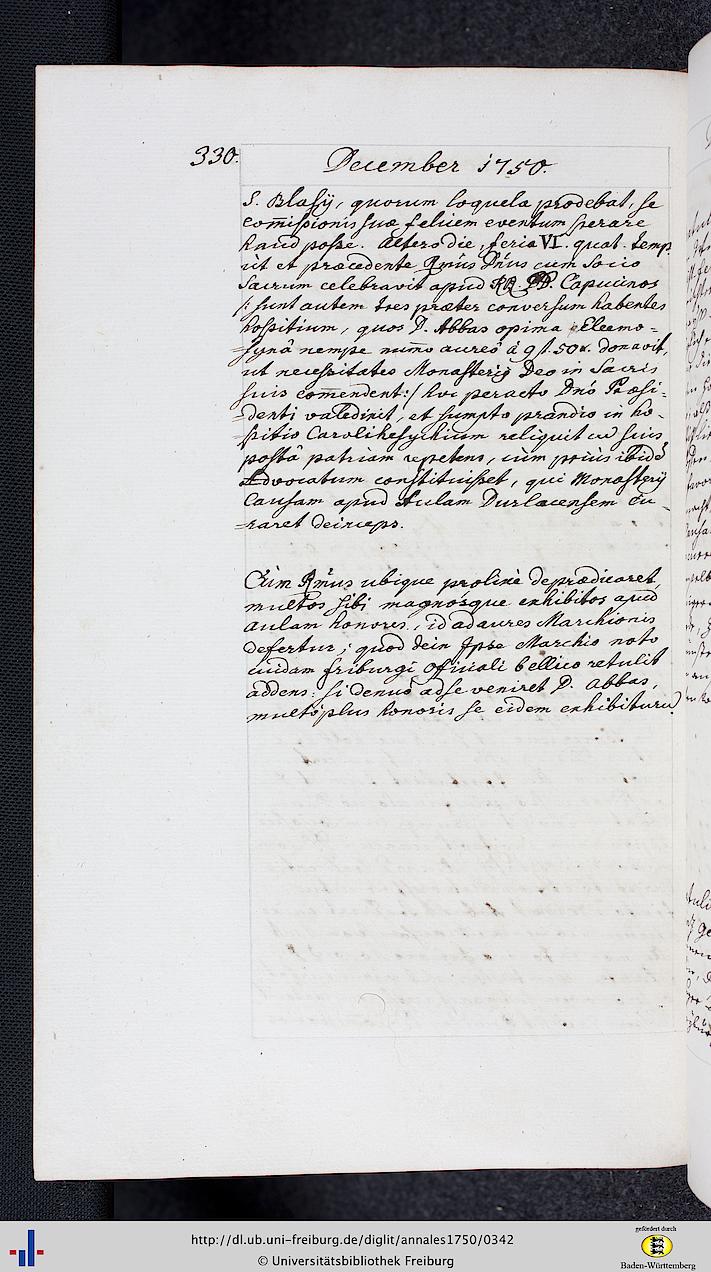 330.
December 1750.
S. Blasÿ, quorum loquela prodebat, se
com̄issionis suæ felicem eventum sperare
haud posse. Altero die, feria VI. quat. temp.
ùt et præcedente Rm̃us Dn̄us cum Socio
Sacrum celebravit apud RR. PP. Capucinos
/: sunt autem tres præter conversum habentes
hospitium, quos D. Abbas opima Eleemo=
=synâ nempe num̄o aureo â 9 fl. 50 x. donavit,
ut necessitates Monasterÿ Deo in Sacris
suis com̄endent :/ hoc peracto Dn̄o Præsi=
=denti valedixit, et sumpto prandio in ho=
=spitio Carolihesychium reliquit cu suis
postâ patriam repetens, cùm priùs ibidē
Advocatum constituisset, qui Monasterÿ
Causam apud Aulam Durlacensem cu=
=raret deinceps.
Cùm Rm̃us ubique prolixè deprædicaret,
multos sibi magnósque exhibitos apud
Aulam honores, id ad aures Marchionis
defertur; quod dein Ipse Marchio noto
cuidam friburgi Officiali bellico retulit
addens: si denuò ad se veniret D. Abbas,
multò plus honoris se eidem exhibiturū.
http://dl.ub.uni-freiburg.de/diglit/annales1750/0342
© Universitätsbibliothek Freiburg
gefördert durch
Baden-Württemberg